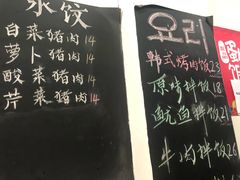 水饺
白菜猪肉14
萝卜猪肉14
酸菜猪肉14
芹菜猪肉14
요리
韩式烤肉饭23
原味拌饭18
鱿鱼拌饭21
牛肉拌饭26